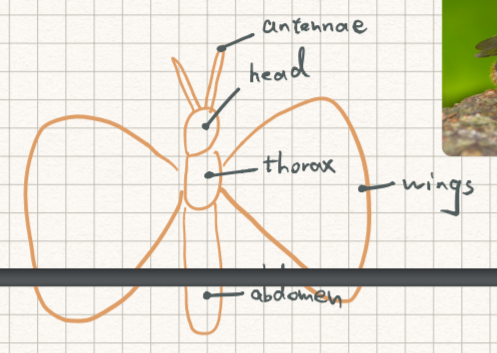 antennae
head
thorax
wings
abdomen